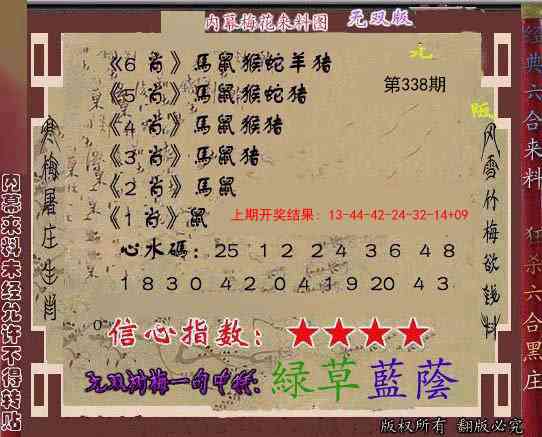 内幕梅花来料图 无双版
《6 肖》馬鼠猴蛇羊猪
《5 肖》馬鼠猴蛇猪
《4 肖》馬鼠猴猪
《3 肖》馬鼠猪
《2 肖》馬鼠
《1 肖》鼠
第338期
上期开奖结果：13-44-42-24-32-14+09
心水碼：25 12 24 36 48
18 30 42 04 19 20 43
信心指数：★★★★
綠草藍蔭
版权所有 翻版必究
寒梅屠庄生肖
风雪竹梅欲钱料
内幕来料未经允许不得转贴
经典六合来料 狂杀六合黑庄